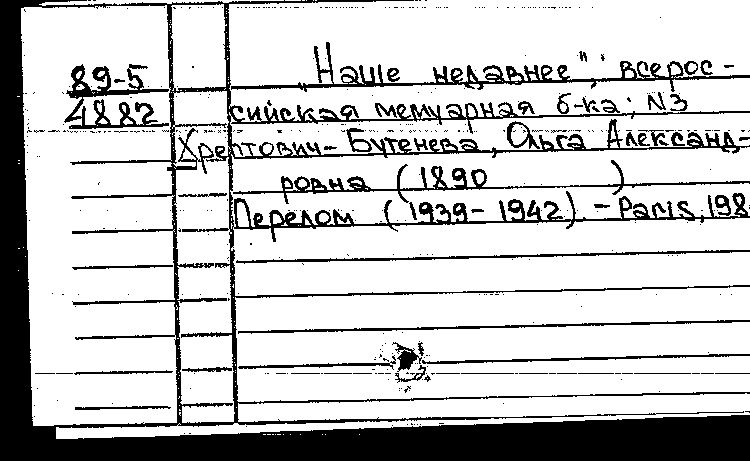 89-5 „Наше недавнее", всерос-
4882 сийская мемуарная б-ка; N3
Хрептович-Бутенева, Ольга Александ-
ровна (1890 )
Перелом (1939-1942) - Paris, 198